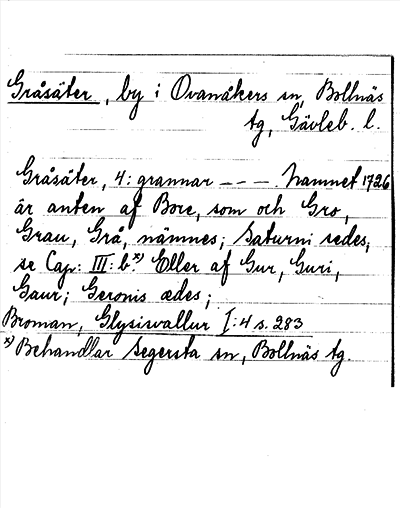 Gråsäter, by i Ovanåkers sn, Bollnäs
tg, Gävleb. l.
Gråsäter, 4: grannar --- . Namnet 1726
är anten af Bore, som och Gro,
Grau, Grå, nämnes; Saturni sedes,
se Cap: III: b.x) Eller af Gur, Guri,
Gaur; Geronis ædes;
Broman, Glysisvallur I:4 s. 283
x) Behandlar Segersta sn, Bollnäs tg.